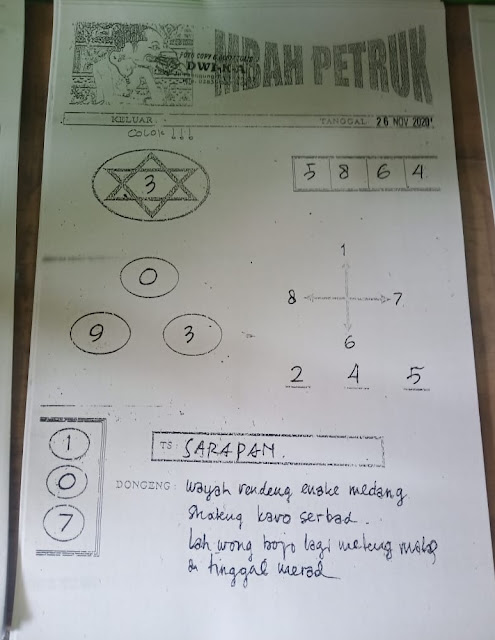 FOTO COPY
DWI-KA
MBAH PETRUK
KELUAR : TANGGAL : 26 NOV 2020
COLOK !!!
3
5 8 6 4
0
9 3
1
8 7
6
2 4 5
1
0
7
TS : SARAPAN.
DONGENG : wayah rendeng enake medang
karo serbad..
Lah wong bojo lagi meteng
tinggal merad